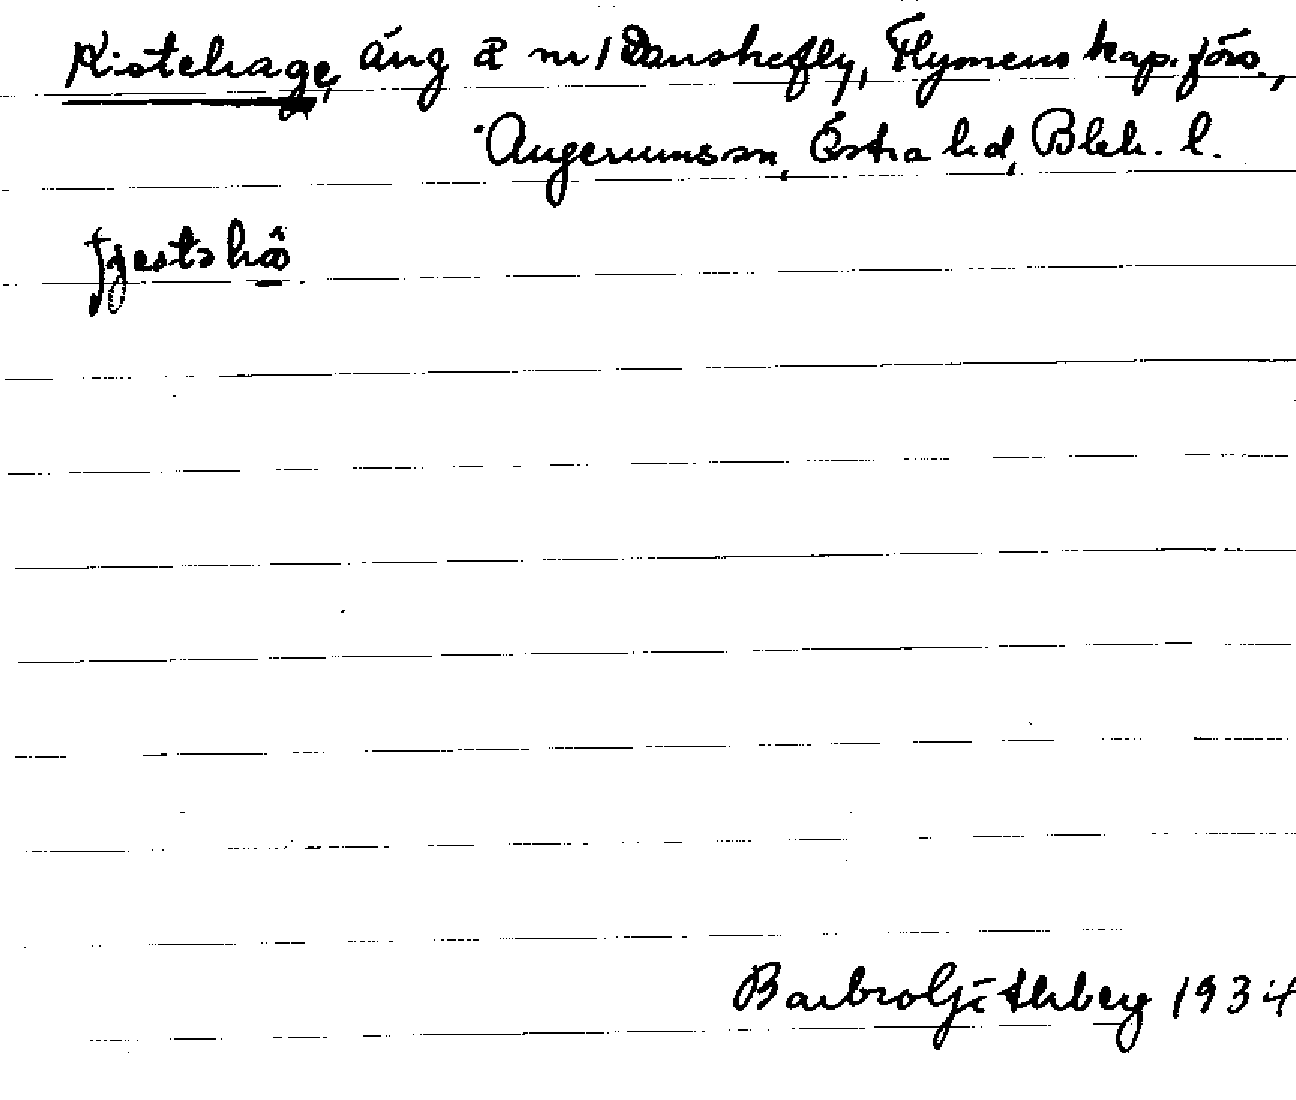 Kistehage, äng å nr 1 Danskefly, Flymens kap. förs.,
Augerums sn, Östra hd, Blek. l.
Barbro Götherberg 1934